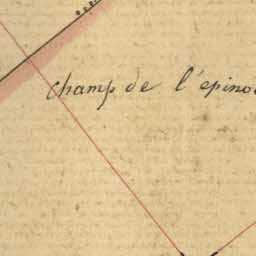 champ de l'épino